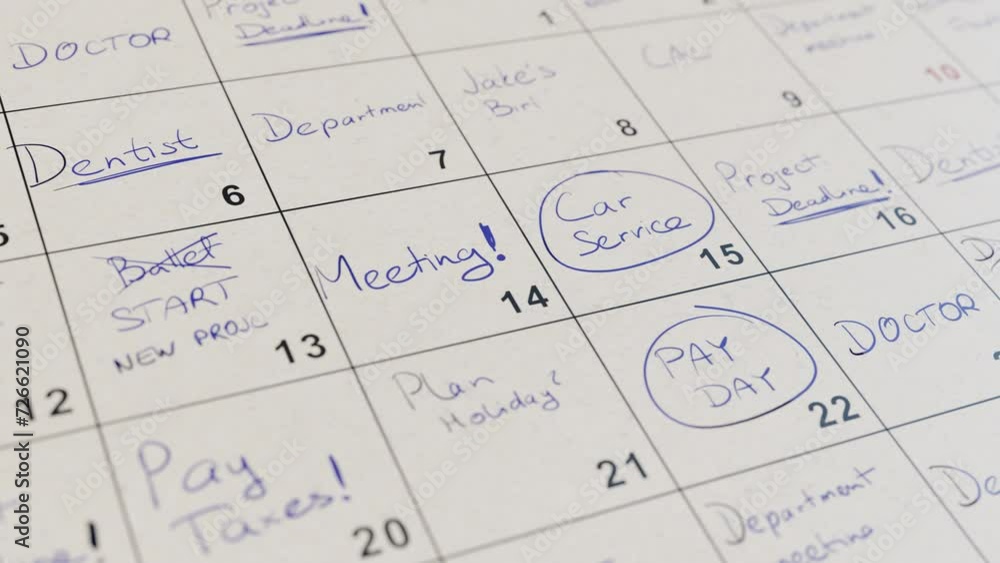 Project
Deadline!
DOCTOR
1
Department
meeting
Dentist
6
Department
7
Jake's
8
9
10
5
Ballet
START
NEW
13
Meeting!
14
Car
Service
15
Project
Deadline!
16
12
Pay
Taxes!
20
Plan
Holiday?
21
PAY
DAY
22
DOCTOR
Department
meeting
Adobe Stock | #726621090
Adobe Stock